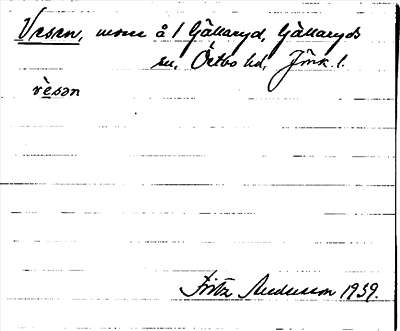 Vesen, mosse å 1 Gällaryd, Gällaryds
sn, Östbo hd, Jönk. l.
vèsən
Fritz Andersson 1939.